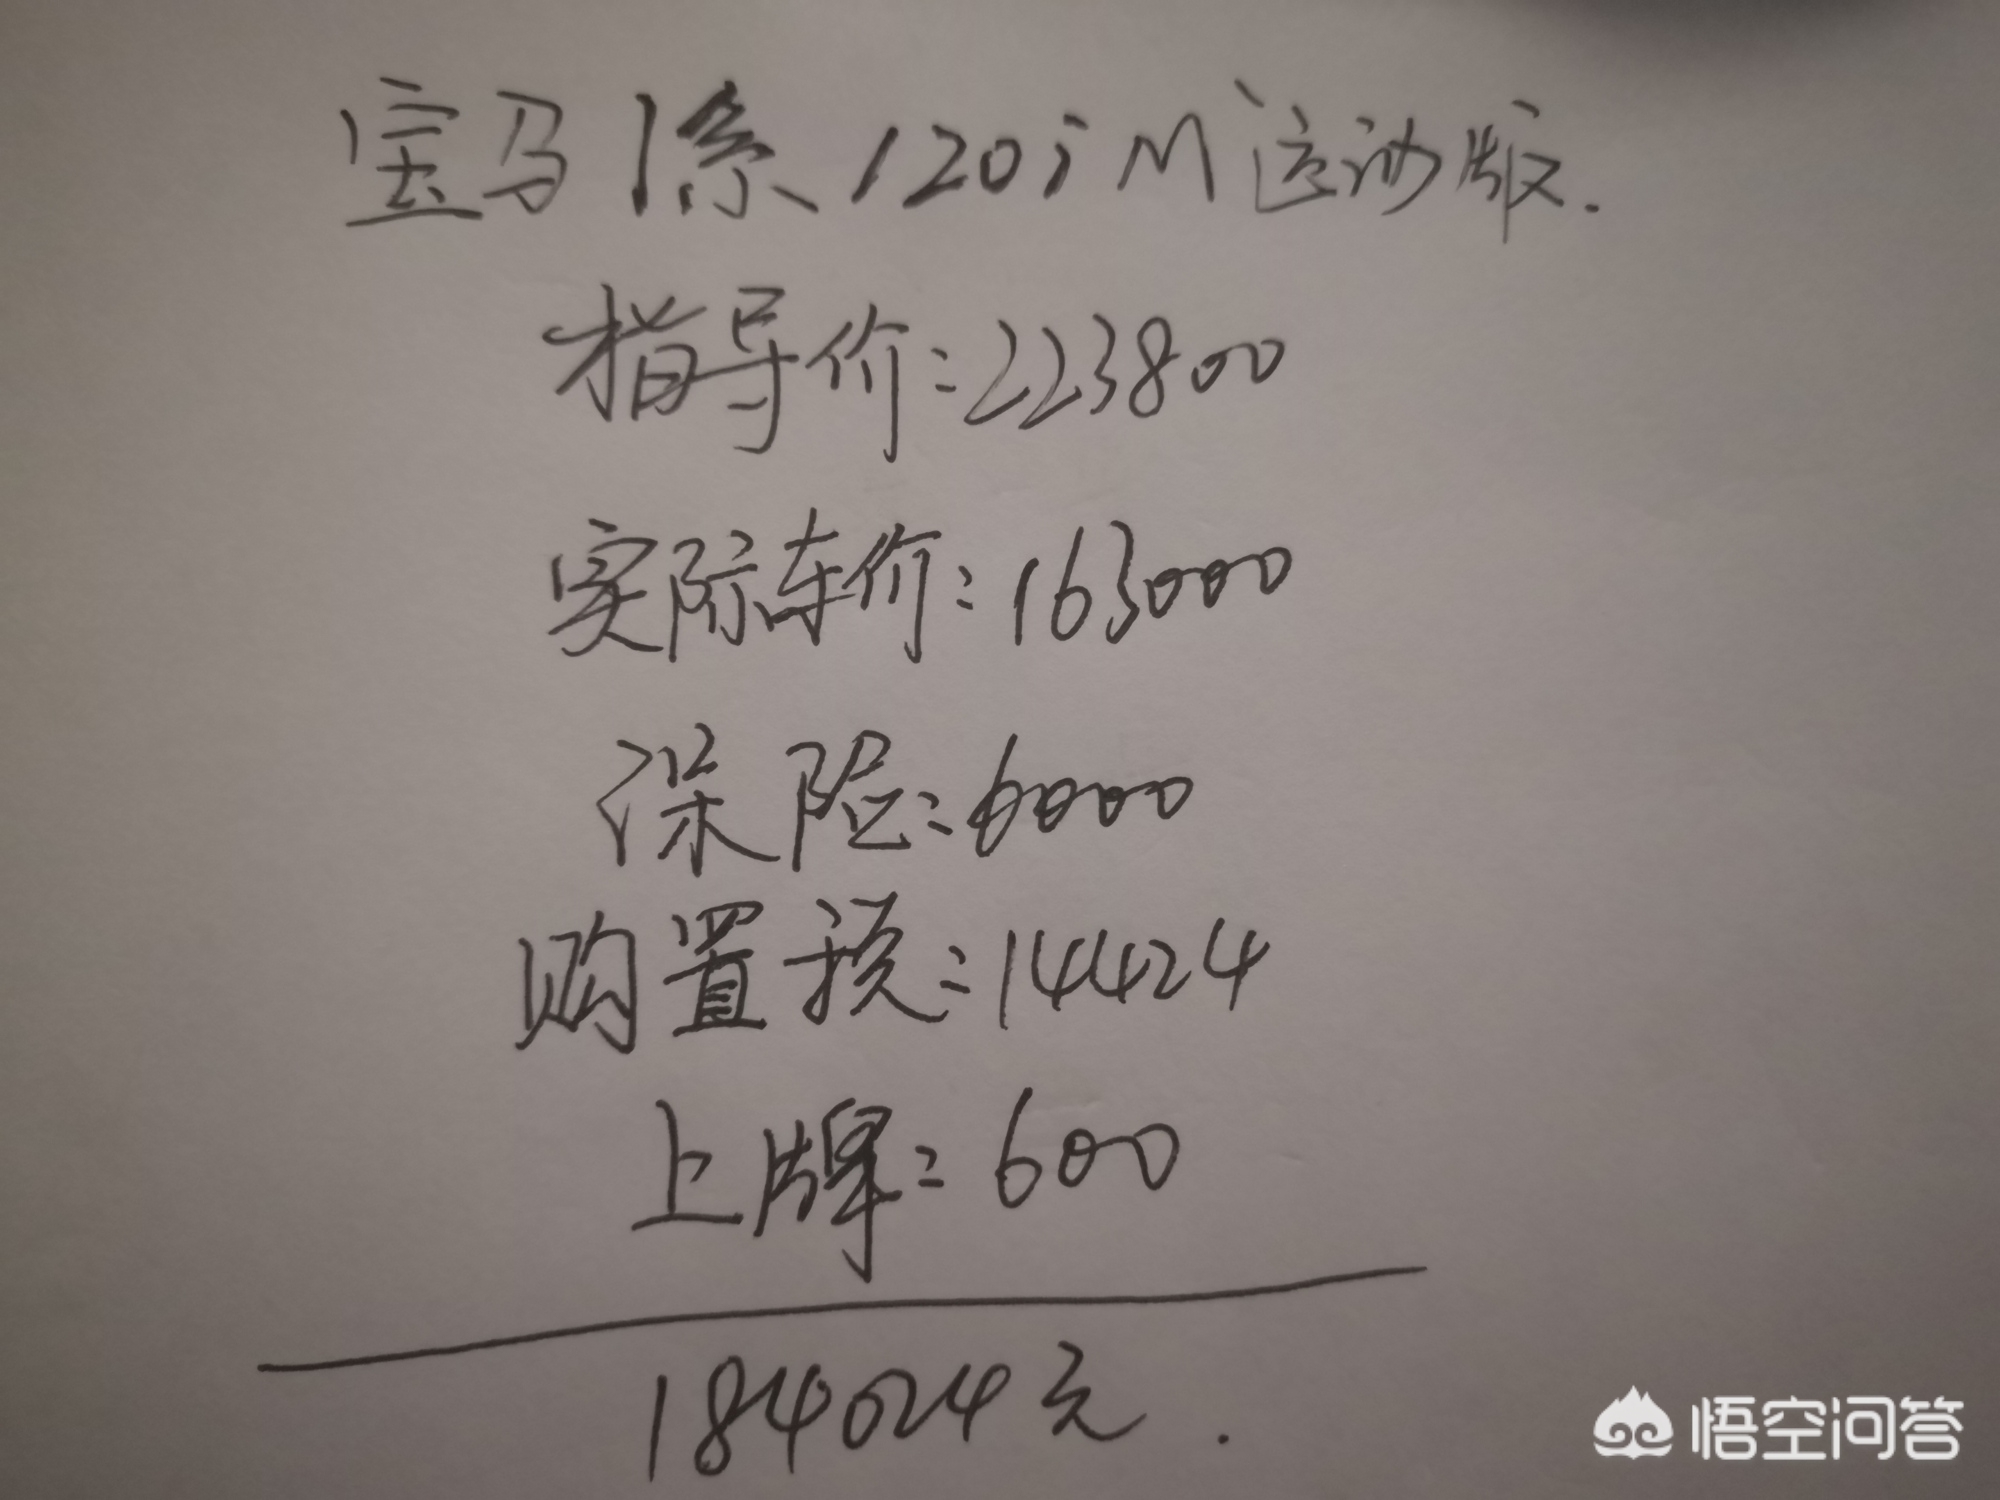 宝马1系120iM运动版.
指导价:223800
实际车价:163000
保险:6000
购置税:14424
上牌:600
184024元.
悟空问答